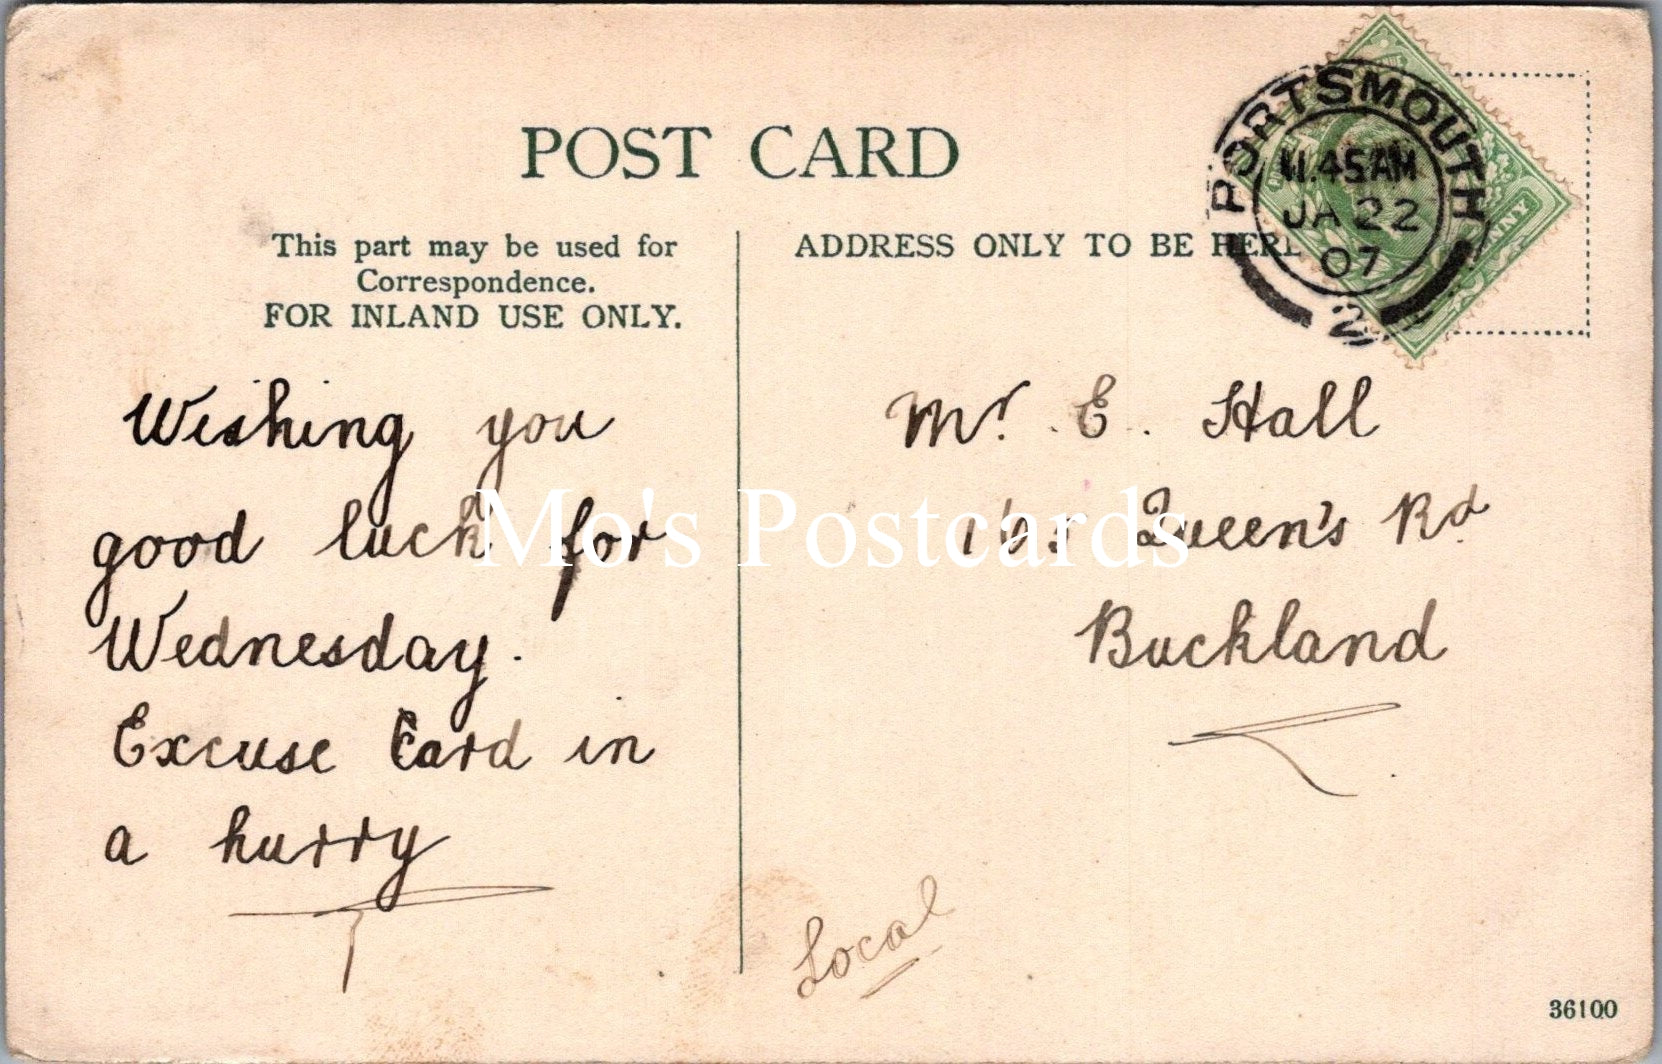 POST CARD
This part may be used for
Correspondence.
FOR INLAND USE ONLY.
ADDRESS ONLY TO BE HERE
PORTSMOUTH
11.45AM
JA 22
07
2
PENNY
Wishing you
good luck for
Wednesday.
Excuse Card in
a hurry
Mr. E. Hall
Queen's Rd
Buckland
Local
36100
Mo's Postcards